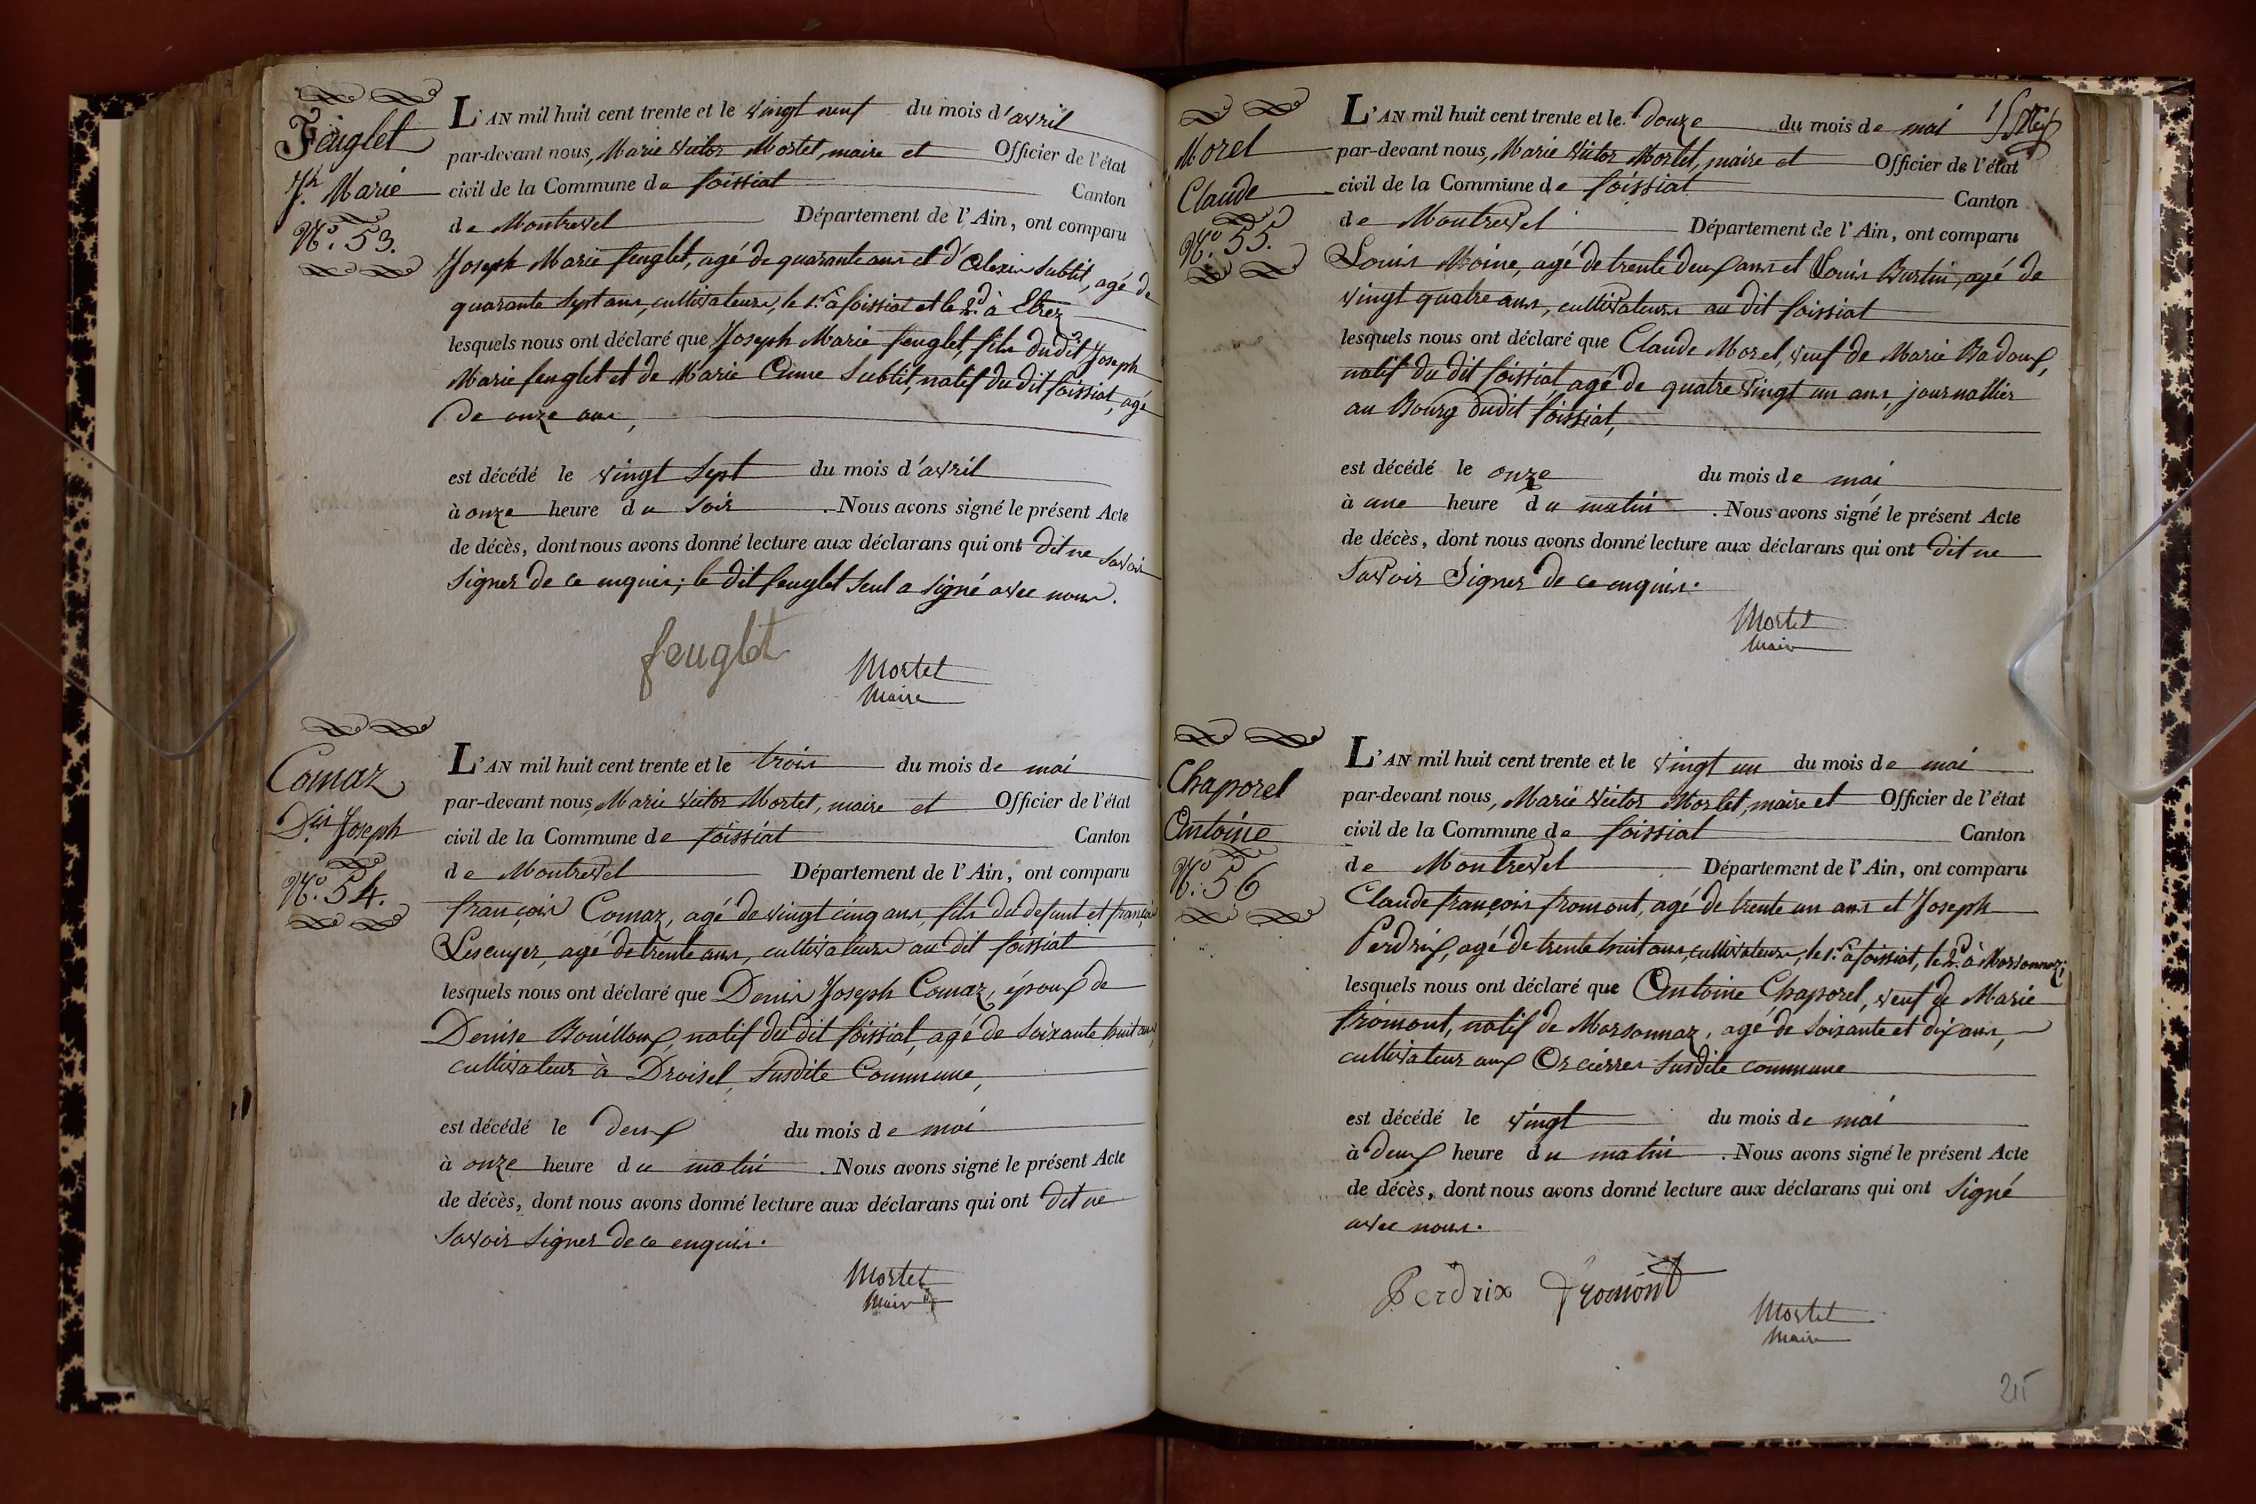 Feuglet
Jh. Marie
N.o 53.
L'AN mil huit cent trente et le vingt neuf du mois d'avril
par-devant nous, Marie Victor Mortet, maire et Officier de l'état
civil de la Commune de foissiat Canton
de Montrevel Département de l'Ain, ont comparu
Joseph Marie feuglet, agé de quarante ans et d'Alexis Subtil, agé de
quarante sept ans, cultivateurs, le 1.r à foissiat et le 2.d à Etrez
lesquels nous ont déclaré que Joseph Marie feuglet, fils dudit Joseph
Marie feuglet et de Marie Aime Subtil, natif du dit foissiat, agé
de onze ans,
est décédé le vingt sept du mois d'avril
à onze heure du soir. Nous avons signé le présent Acte
de décès, dont nous avons donné lecture aux déclarans qui ont dit ne savoir
signer de ce enquis; le dit feuglet seul a signé avec nous.
feuglet
Mortet
Maire
Comaz
D.is Joseph
N.o 54.
L'AN mil huit cent trente et le trois du mois de mai
par-devant nous, Marie Victor Mortet, maire et Officier de l'état
civil de la Commune de foissiat Canton
de Montrevel Département de l'Ain, ont comparu
françois Comaz, agé de vingt cinq ans, fils du defunt et françois
Lescuyer, agé de trente ans, cultivateurs au dit foissiat
lesquels nous ont déclaré que Denis Joseph Comaz, époux de
Denise Bouilloux, natif du dit foissiat, agé de soixante huit ans,
cultivateur à Droisel, susdite Commune,
est décédé le deux du mois de mai
à onze heure du matin. Nous avons signé le présent Acte
de décès, dont nous avons donné lecture aux déclarans qui ont dit ne
savoir signer de ce enquis.
Mortet
Maire
Morel
Claude
N.o 55.
L'AN mil huit cent trente et le douze du mois de mai
par-devant nous, Marie Victor Mortet, maire et Officier de l'état
civil de la Commune de foissiat Canton
de Montrevel Département de l'Ain, ont comparu
Louis Moine, agé de trente deux ans et Louis Burtin, agé de
vingt quatre ans, cultivateurs au dit foissiat
lesquels nous ont déclaré que Claude Morel, veuf de Marie Badoux,
natif du dit foissiat, agé de quatre vingt un ans, journallier
au Bourg dudit foissiat,
est décédé le onze du mois de mai
à une heure du matin. Nous avons signé le présent Acte
de décès, dont nous avons donné lecture aux déclarans qui ont dit ne
savoir signer de ce enquis.
Mortet
Maire
Chaporel
Antoine
N.o 56
L'AN mil huit cent trente et le vingt un du mois de mai
par-devant nous, Marie Victor Mortet, maire et Officier de l'état
civil de la Commune de foissiat Canton
de Montrevel Département de l'Ain, ont comparu
Claude françois fromont, agé de trente un ans et Joseph
Perdrix, agé de trente huit ans, cultivateurs, le 1.r à foissiat, le 2.d à Marsonnaz;
lesquels nous ont déclaré que Antoine Chaporel, veuf de Marie
fromont, natif de Marsonnaz, agé de soixante et dix ans,
cultivateur aux Orcières susdite commune
est décédé le vingt du mois de mai
à deux heure du matin. Nous avons signé le présent Acte
de décès, dont nous avons donné lecture aux déclarans qui ont signé
avec nous.
Perdrix fromont
Mortet
Maire
215